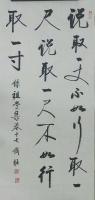 说取一丈不如行取一
尺说取一尺不如行
取一寸